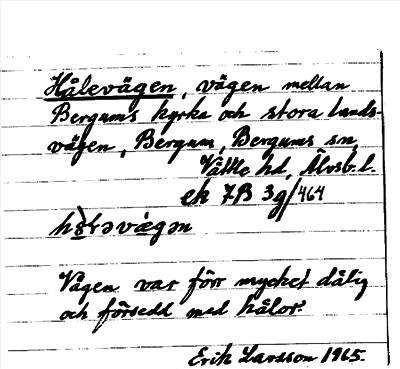 Hålevägen, vägen mellan
Bergums kyrka och stora lands-
vägen, Bergum, Bergums sn,
Vättle hd, Älvsb. l.
ek 7B 3g/464
hɷ̀ləvæ̀gən
Vägen var förr mycket dålig
och försedd med hålor.
Erik Larsson 1965.